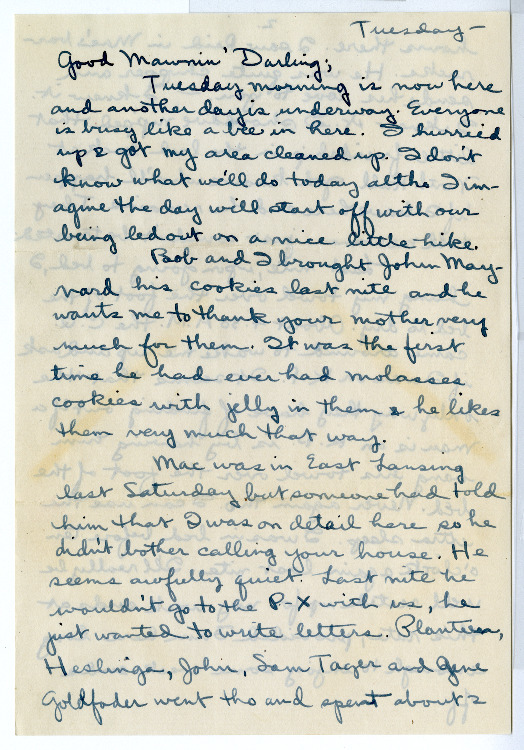 Tuesday —
Good Mawnin' Darling;
Tuesday morning is now here
and another day is underway. Everyone
is busy like a bee in here. I hurried
up & got my area cleaned up. I don't
know what we'll do today altho I im-
agine the day will start off with our
being led out on a nice little hike.
Bob and I brought John May-
nard his cookies last nite and he
wants me to thank your mother very
much for them. It was the first
time he had ever had molasses
cookies with jelly in them & he likes
them very much that way.
Mac was in East Lansing
last Saturday but someone had told
him that I was on detail here so he
didn't bother calling your house. He
seems awfully quiet. Last nite he
wouldn't go to the P-X with us, he
just wanted to write letters.
Heslinga, John, Sam Tager and Gene
Goldfader went tho and spent about 2